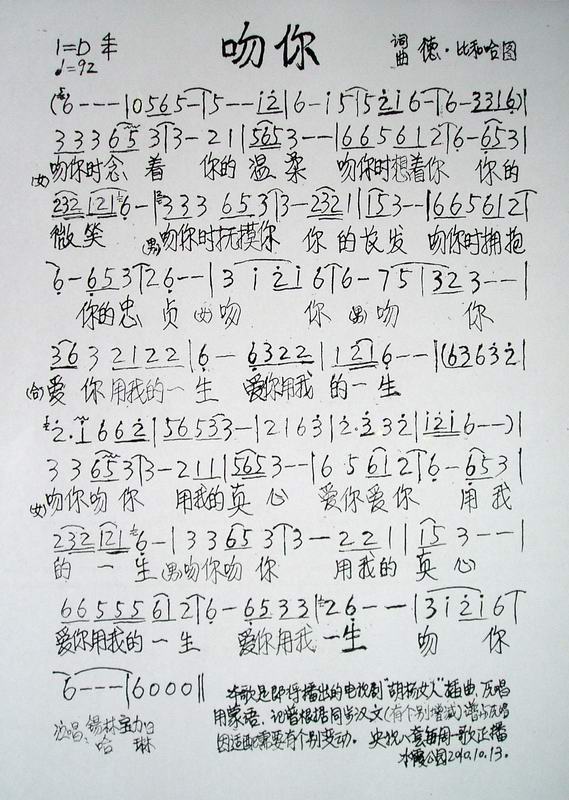 吻你
1=D 4/4
♩=92
词曲 德·比和哈图
(6 - - - | 0 5 6 5 - | 5 - - i 2 | 6 - i 5 | 5 2 i 6 - | 6 - 3 3 1 6) |
3 3 3 6 5 3 | 3 - 2 1 | 5 6 5 3 - - | 6 6 5 6 1 2 | 6 - 6 5 3 |
(女)吻你时念着 你的温柔 吻你时想着你 你的
2 3 2 1 2 1 6 - | 3 3 3 6 5 3 | 3 - 2 3 2 1 | 1 5 3 - - | 6 6 5 6 1 2 |
微笑 (男)吻你时抚摸你 你的长发 吻你时拥抱
6 - 6 5 3 | 2 6 - - | 3 i 2 i 6 | 6 - 7 5 | 3 2 3 - - |
你的忠贞 (女)吻 你 (男)吻 你
3 6 3 2 1 2 2 | 6 - 6 3 2 2 | 1 2 1 6 - - | (6 3 6 3 2 |
(合)爱你用我的一生 爱你用我的一生
2 · 1 6 6 2 | 5 6 5 3 3 - | 2 1 6 3 | 2 · 3 3 2 | i 2 i 6 - - ) |
3 3 6 5 3 | 3 - 2 1 1 | 5 6 5 3 - - | 6 5 6 1 2 | 6 - 6 5 3 |
(女)吻你吻你 用我的真心 爱你爱你 用我
2 3 2 1 2 1 6 - | 3 3 6 5 3 | 3 - 2 2 1 | 1 5 3 - - |
的一生 (男)吻你吻你 用我的真心
6 6 5 5 5 6 1 2 | 6 - 6 5 3 3 | 2 6 - - | 3 i 2 i 6 |
爱你用我的一生 爱你用我一生 吻 你
6 - - - | 6 0 0 0 ||
本歌是即将播出的电视剧“胡杨女人”插曲,原唱
用蒙语。记谱根据同步汉文(有个别增减)谱与原唱
因适配需要有个别变动。央视八套每周一歌正播
演唱:锡林宝力日
哈琳
水霞公园2010.10.13.